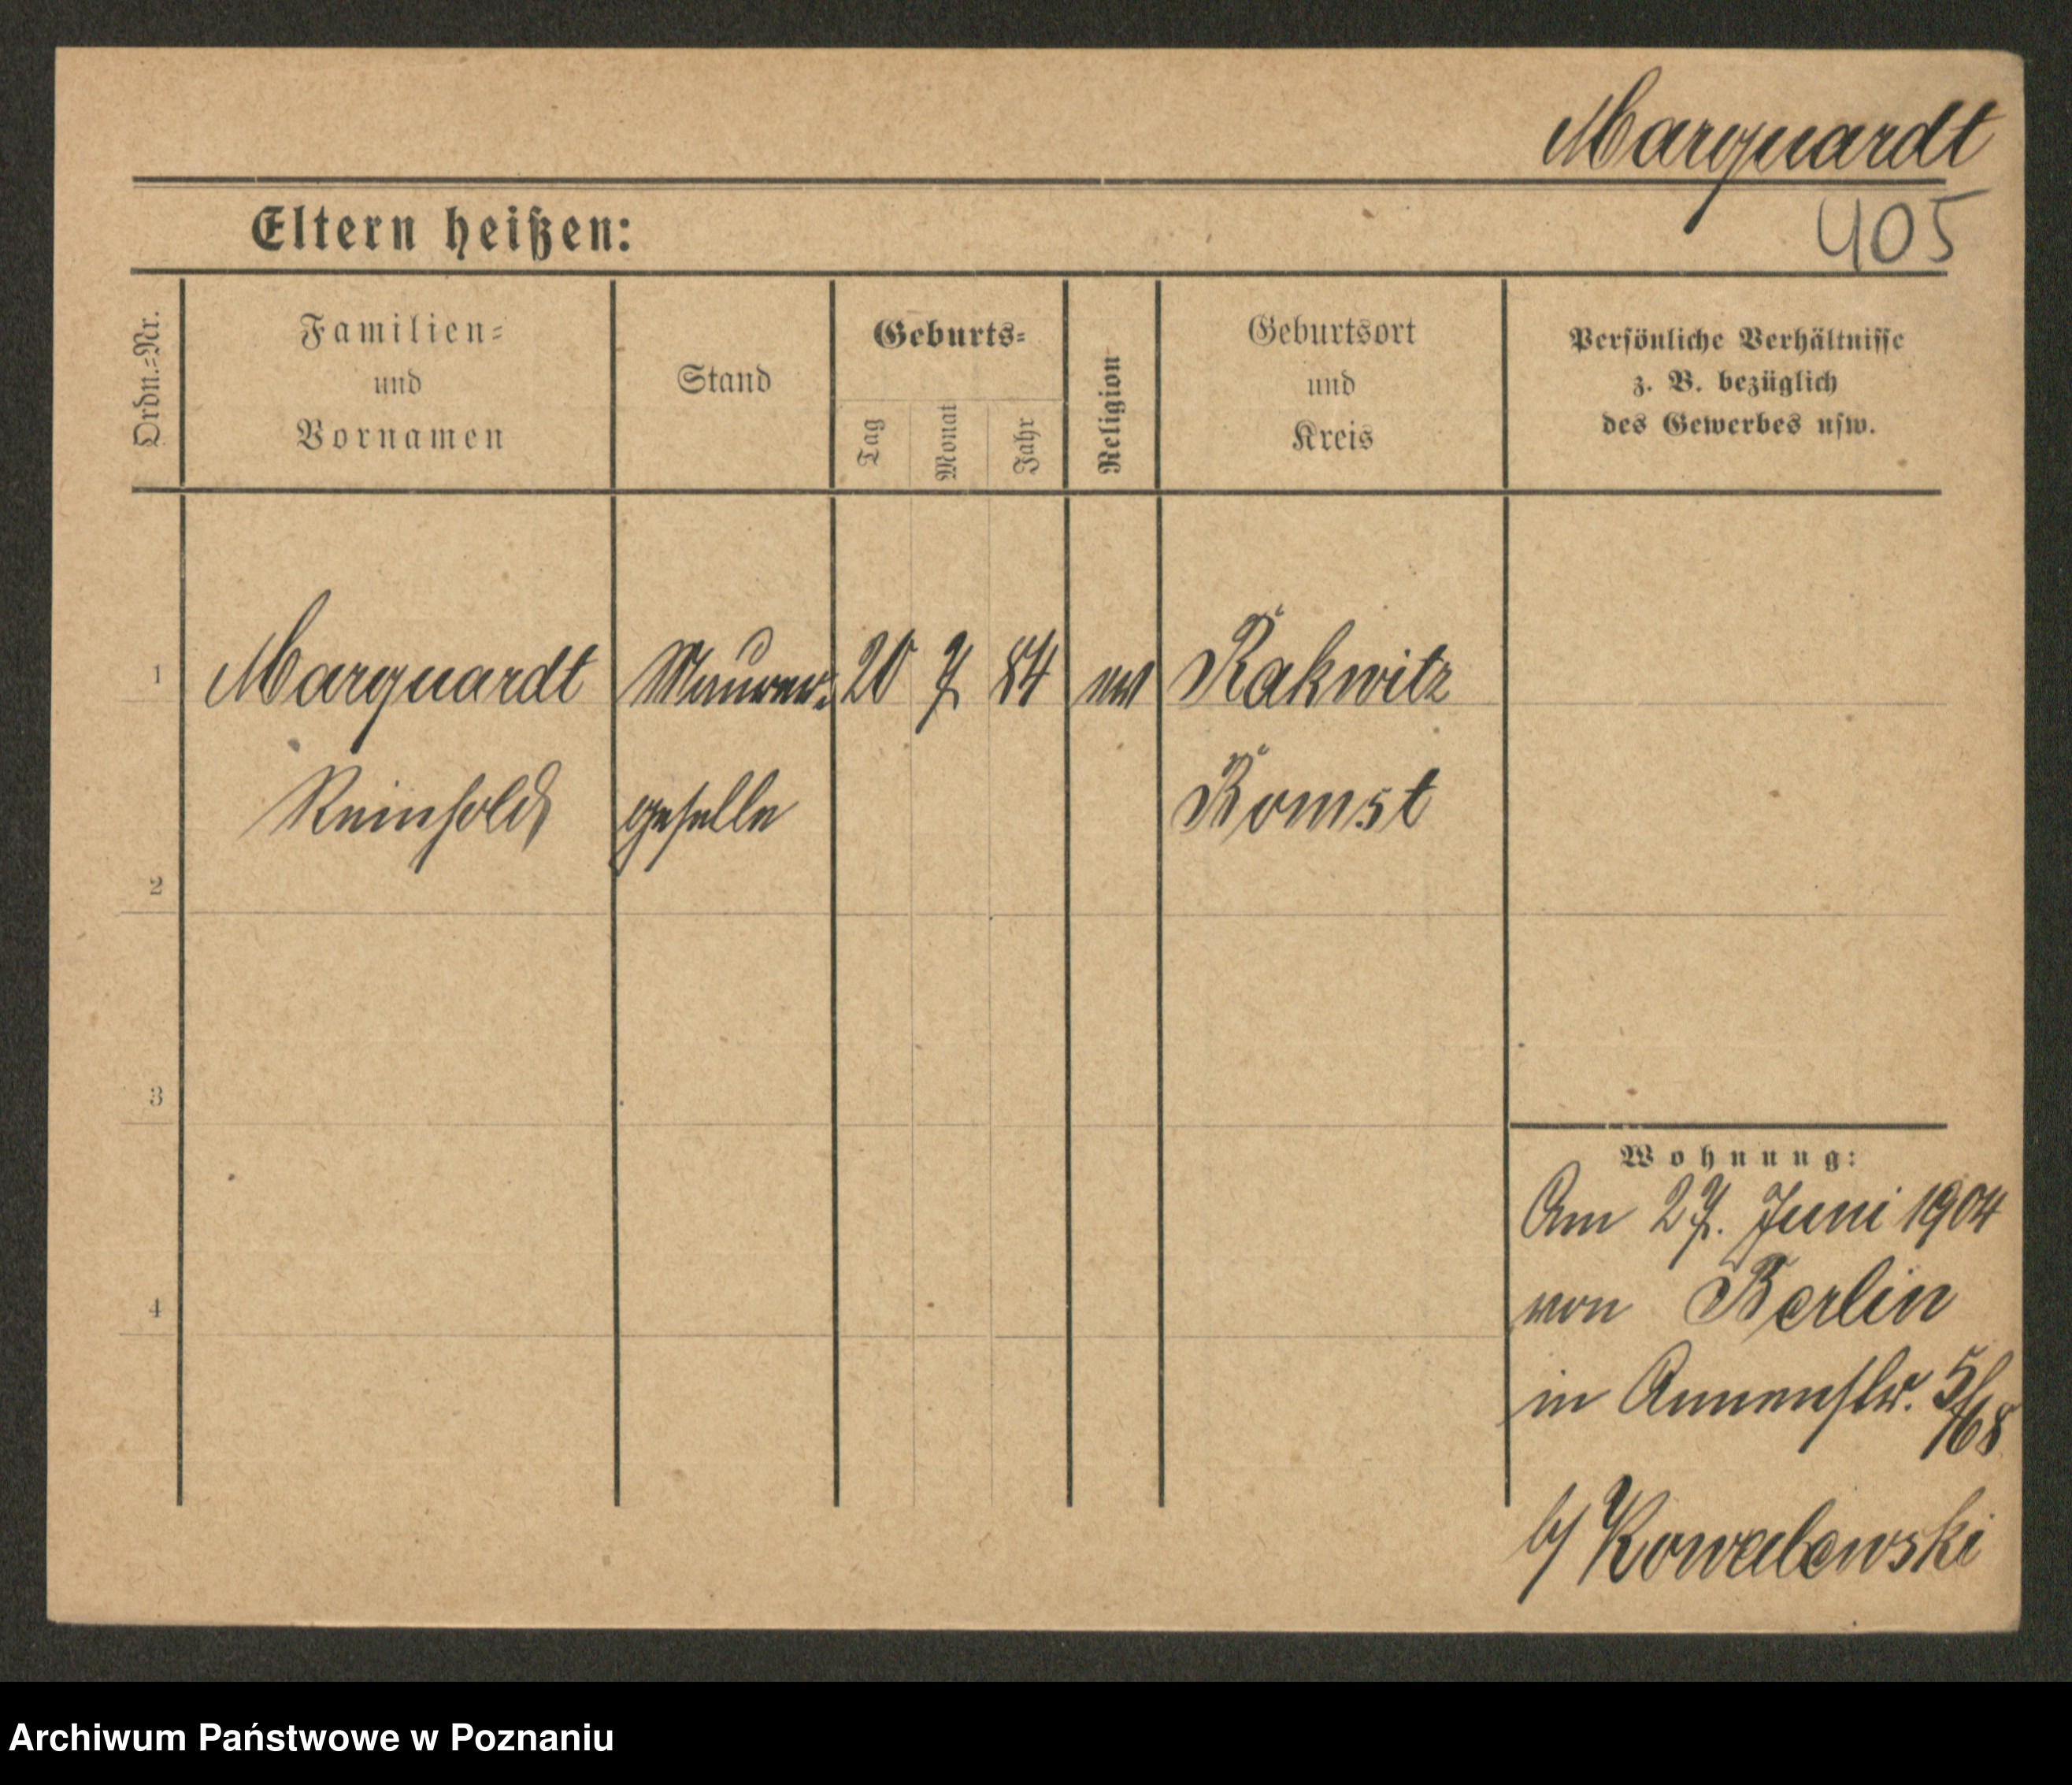 Marquardt
405
Eltern heißen:
Ordn.=Nr.
Familien=
und
Vornamen
Stand
Geburts=
Tag
Monat
Jahr
Religion
Geburtsort
und
Kreis
Persönliche Verhältnisse
z. B. bezüglich
des Gewerbes usw.
1 Marquardt Maurer= 20 7 84 ev Rakwitz
Reinhold geselle Bomst
2
3
4
Wohnung:
Am 27. Juni 1904
von Berlin
in Annenstr. 5/
168
b/ Kowalewski
Archiwum Państwowe w Poznaniu